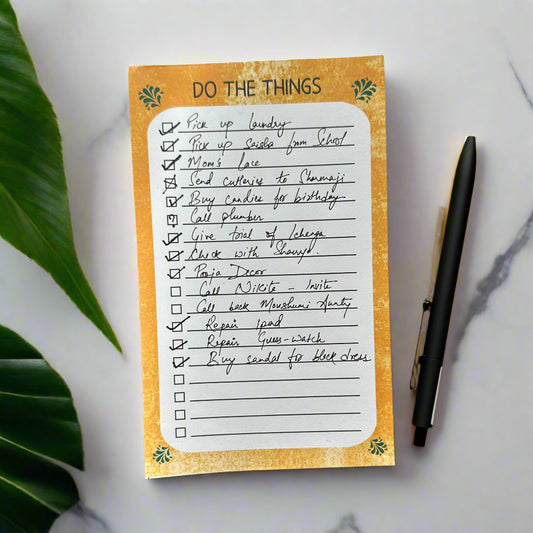 DO THE THINGS
Pick up laundry
Pick up Saisha from School
Mom's lace
Send cutteries to Sharmaji
Buy candies for birthday
Call plumber
Give total of
Check with
Pooja Decor
Call Nikita - Invite
Call back Moushumi Aunty
Repair Ipad
Repair Guess-watch
Buy sandal for black dress